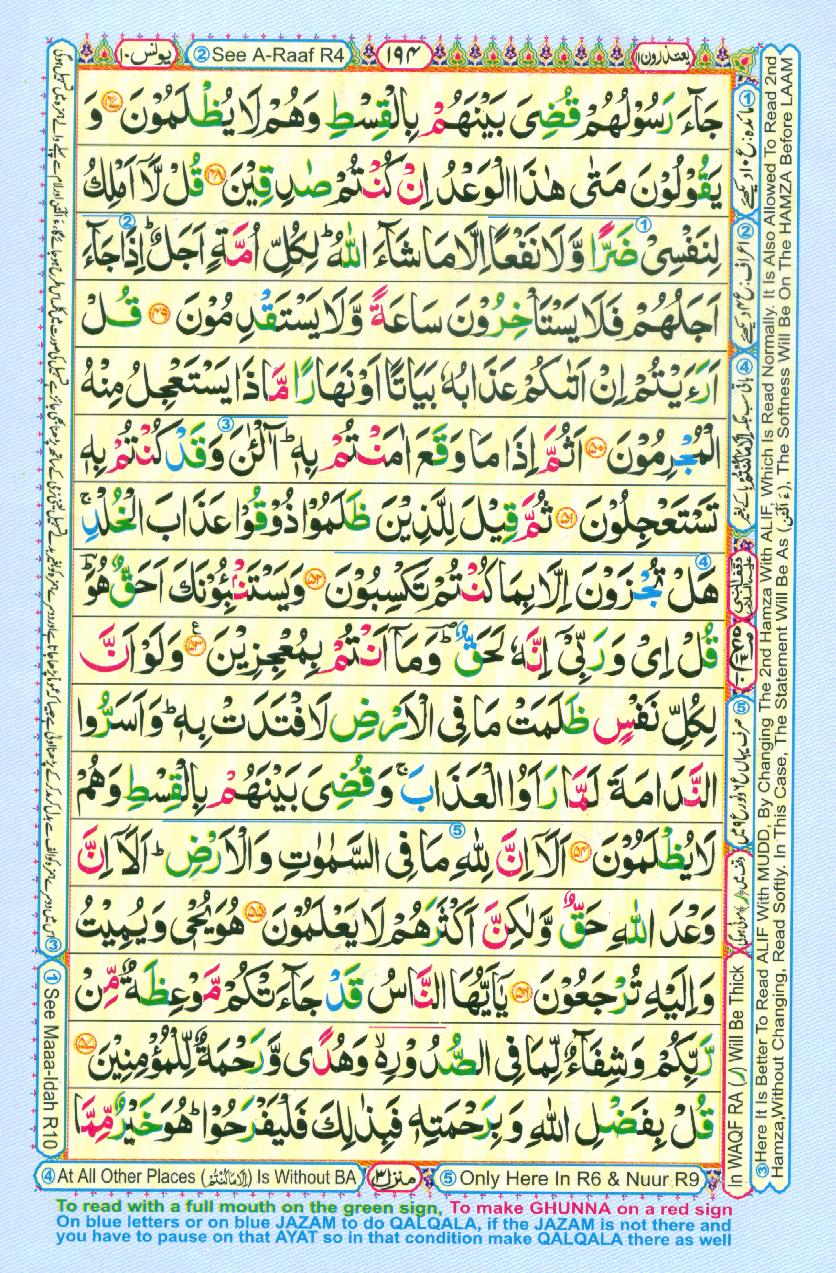 یونس ۱۰
② See A-Raaf R4
۱۹۴
یعتذرون ۱۱
جَآءَ رَسُوْلُهُمْ قُضِیَ بَیْنَهُمْ بِالْقِسْطِ وَهُمْ لَا یُظْلَمُوْنَ ﴿۴۷﴾ وَ
یَقُوْلُوْنَ مَتٰی هٰذَا الْوَعْدُ اِنْ كُنْتُمْ صٰدِقِیْنَ ﴿۴۸﴾ قُلْ لَّاۤ اَمْلِكُ
لِنَفْسِیْ ضَرًّا وَّلَا نَفْعًا اِلَّا مَا شَآءَ اللّٰهُ ؕ لِكُلِّ اُمَّةٍ اَجَلٌ ؕ اِذَا جَآءَ
اَجَلُهُمْ فَلَا یَسْتَاْخِرُوْنَ سَاعَةً وَّلَا یَسْتَقْدِمُوْنَ ﴿۴۹﴾ قُلْ
اَرَءَیْتُمْ اِنْ اَتٰىكُمْ عَذَابُهٗ بَیَاتًا اَوْ نَهَارًا مَّاذَا یَسْتَعْجِلُ مِنْهُ
الْمُجْرِمُوْنَ ﴿۵۰﴾ اَثُمَّ اِذَا مَا وَقَعَ اٰمَنْتُمْ بِهٖ ؕ آٰلْـٰٔنَ وَقَدْ كُنْتُمْ بِهٖ
تَسْتَعْجِلُوْنَ ﴿۵۱﴾ ثُمَّ قِیْلَ لِلَّذِیْنَ ظَلَمُوْا ذُوْقُوْا عَذَابَ الْخُلْدِ ۚ
هَلْ تُجْزَوْنَ اِلَّا بِمَا كُنْتُمْ تَكْسِبُوْنَ ﴿۵۲﴾ وَیَسْتَنْۢبِـُٔوْنَكَ اَحَقٌّ هُوَ ؕ
قُلْ اِیْ وَرَبِّیْۤ اِنَّهٗ لَحَقٌّ ؔؕ وَمَاۤ اَنْتُمْ بِمُعْجِزِیْنَ ﴿۵۳﴾ وَلَوْ اَنَّ
لِكُلِّ نَفْسٍ ظَلَمَتْ مَا فِی الْاَرْضِ لَافْتَدَتْ بِهٖ ؕ وَاَسَرُّوا
النَّدَامَةَ لَمَّا رَاَوُا الْعَذَابَ ۚ وَقُضِیَ بَیْنَهُمْ بِالْقِسْطِ وَهُمْ
لَا یُظْلَمُوْنَ ﴿۵۴﴾ اَلَاۤ اِنَّ لِلّٰهِ مَا فِی السَّمٰوٰتِ وَالْاَرْضِ ؕ اَلَاۤ اِنَّ
وَعْدَ اللّٰهِ حَقٌّ وَّلٰكِنَّ اَكْثَرَهُمْ لَا یَعْلَمُوْنَ ﴿۵۵﴾ هُوَ یُحْیٖ وَیُمِیْتُ
وَاِلَیْهِ تُرْجَعُوْنَ ﴿۵۶﴾ یٰۤاَیُّهَا النَّاسُ قَدْ جَآءَتْكُمْ مَّوْعِظَةٌ مِّنْ
رَّبِّكُمْ وَشِفَآءٌ لِّمَا فِی الصُّدُوْرِ ۙ۬ وَهُدًی وَّرَحْمَةٌ لِّلْمُؤْمِنِیْنَ ﴿۵۷﴾
قُلْ بِفَضْلِ اللّٰهِ وَبِرَحْمَتِهٖ فَبِذٰلِكَ فَلْیَفْرَحُوْا ؕ هُوَ خَیْرٌ مِّمَّا
① See Maaa-idah R10
In WAQF RA (ر) Will Be Thick
③ Here It Is Better To Read ALIF With MUDD, By Changing The 2nd Hamza With ALIF, Which Is Read Normally. It Is Also Allowed To Read 2nd
Hamza,Without Changing, Read Softly. In This Case, The Statement Will Be As (ءَ اَلْئٰنَ), The Softness Will Be On The HAMZA Before LAAM
④ At All Other Places (اِلَّا مَا كُنْتُمْ) Is Without BA
منزل ۳
⑤ Only Here In R6 & Nuur R9
To read with a full mouth on the green sign, To make GHUNNA on a red sign
On blue letters or on blue JAZAM to do QALQALA, if the JAZAM is not there and
you have to pause on that AYAT so in that condition make QALQALA there as well